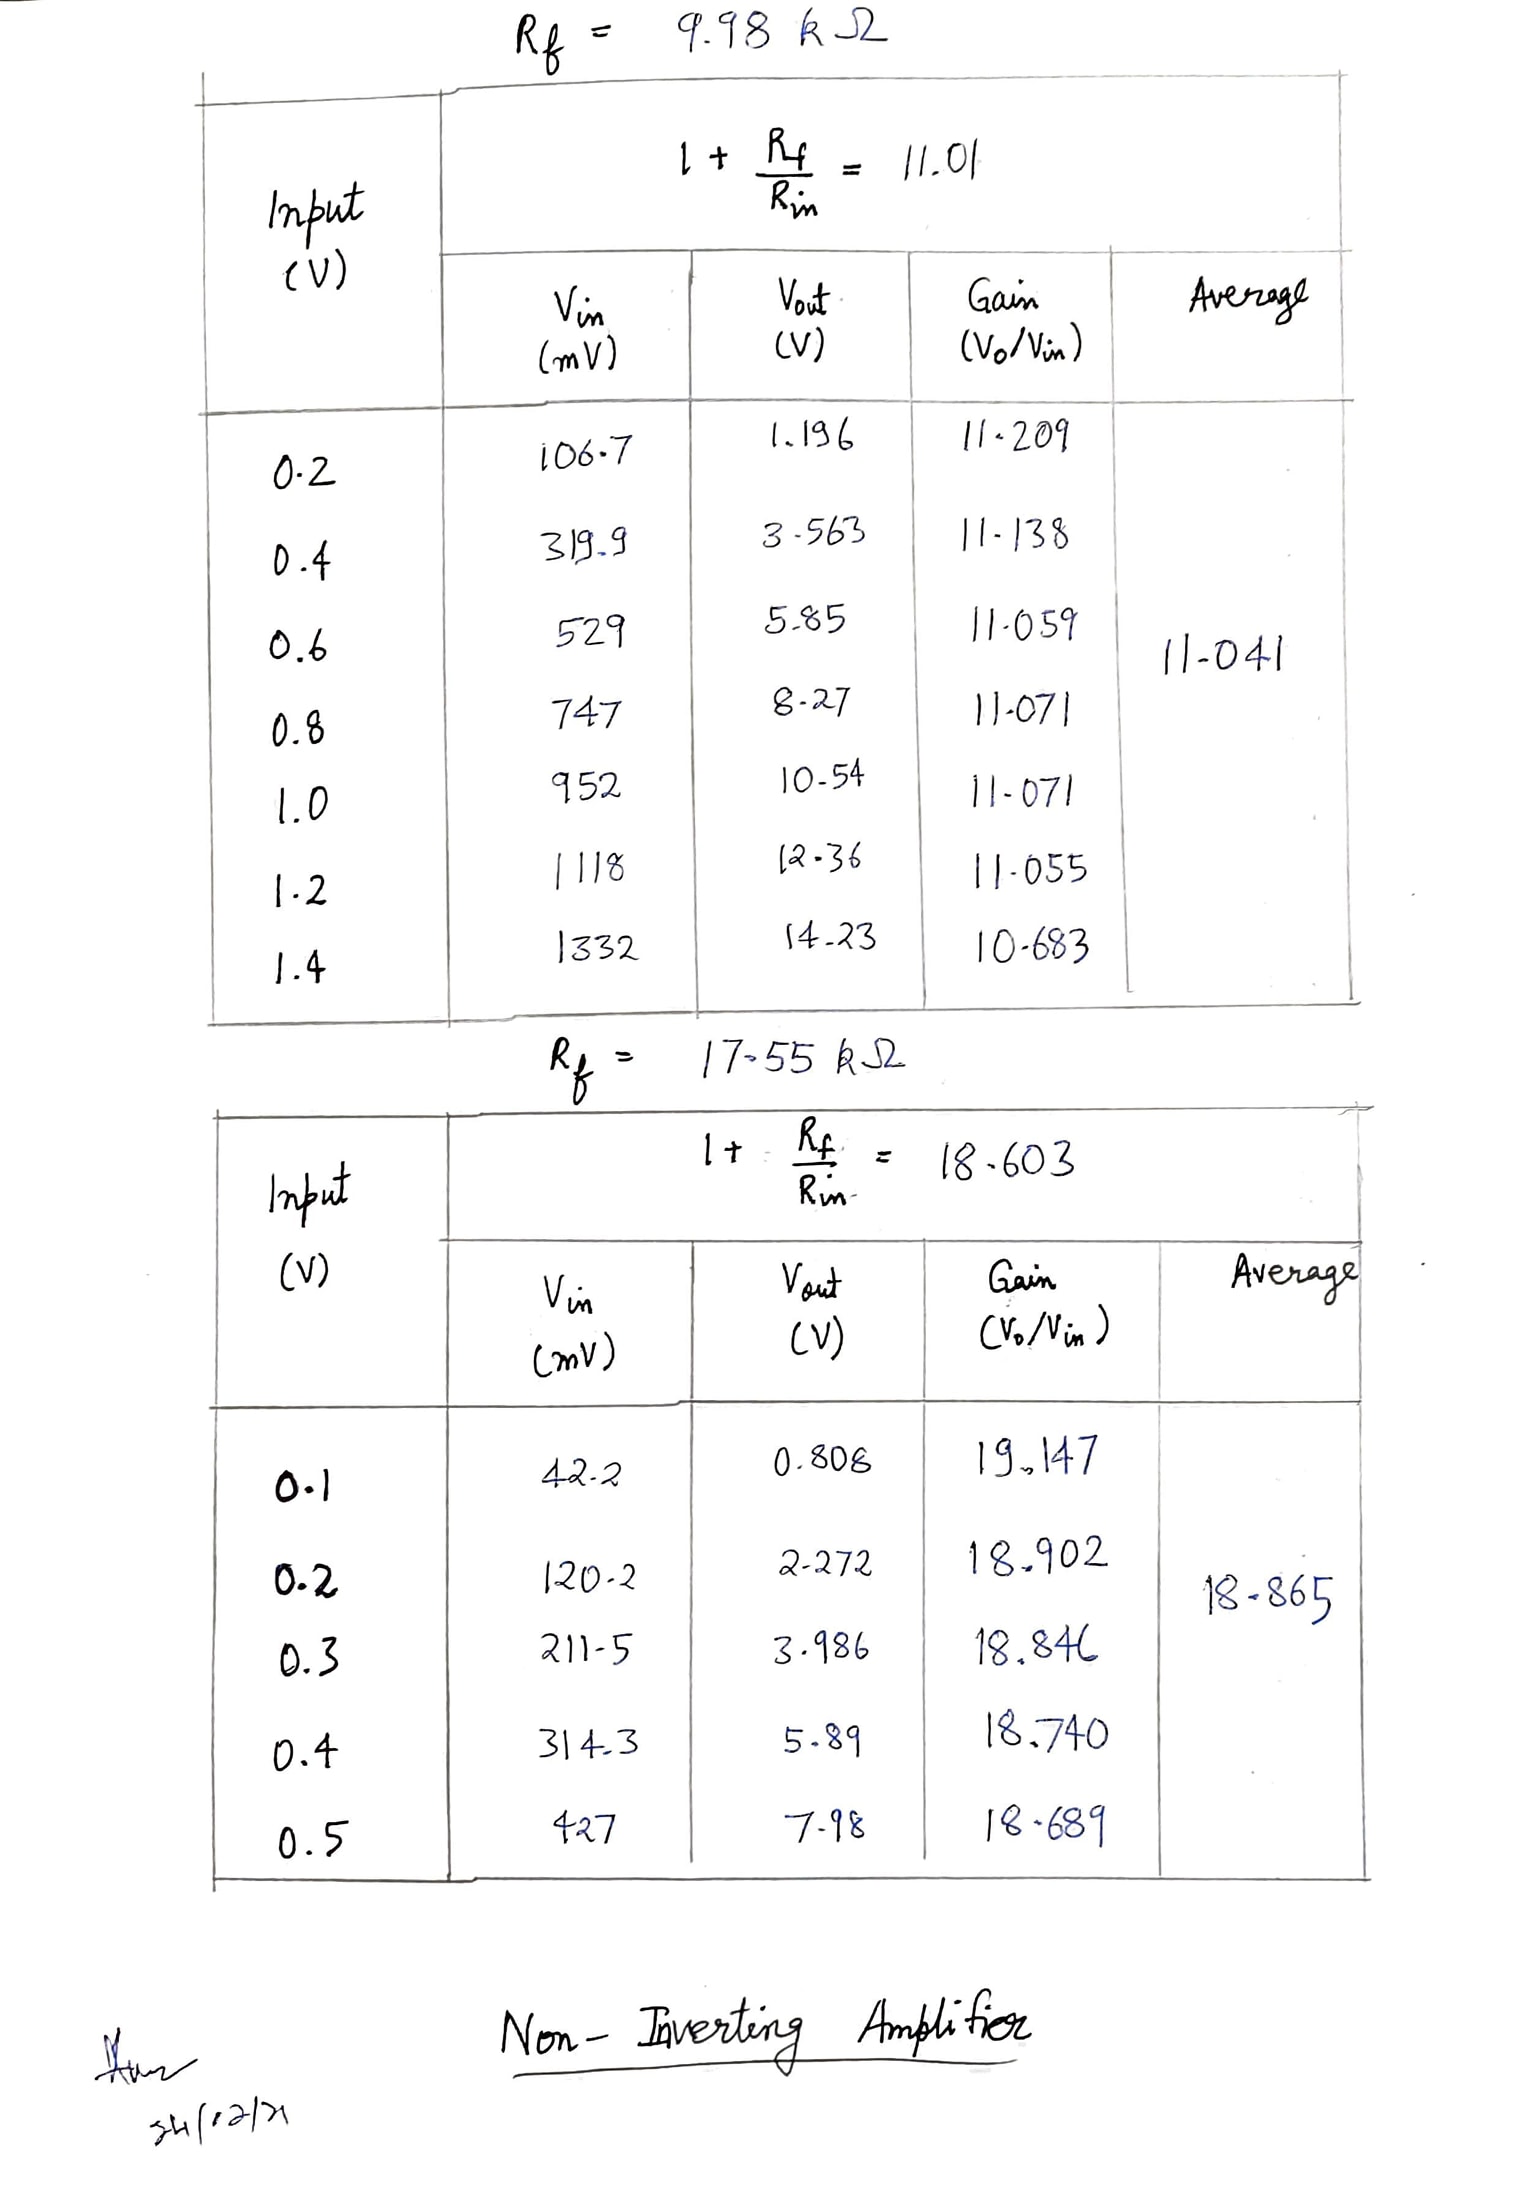 Rf = 9.98 kΩ
Input (V)
1 + Rf/Rin = 11.01
Vin (mV) Vout (V) Gain (Vo/Vin) Average
0.2 106.7 1.196 11.209
0.4 319.9 3.563 11.138
0.6 529 5.85 11.059
11.041
0.8 747 8.27 11.071
1.0 952 10.54 11.071
1.2 1118 12.36 11.055
1.4 1332 14.23 10.683
Rf = 17.55 kΩ
Input (V)
1 + Rf/Rin = 18.603
Vin (mV) Vout (V) Gain (Vo/Vin) Average
0.1 42.2 0.808 19.147
0.2 120.2 2.272 18.902
18.865
0.3 211.5 3.986 18.846
0.4 314.3 5.89 18.740
0.5 427 7.98 18.689
Non-Inverting Amplifier